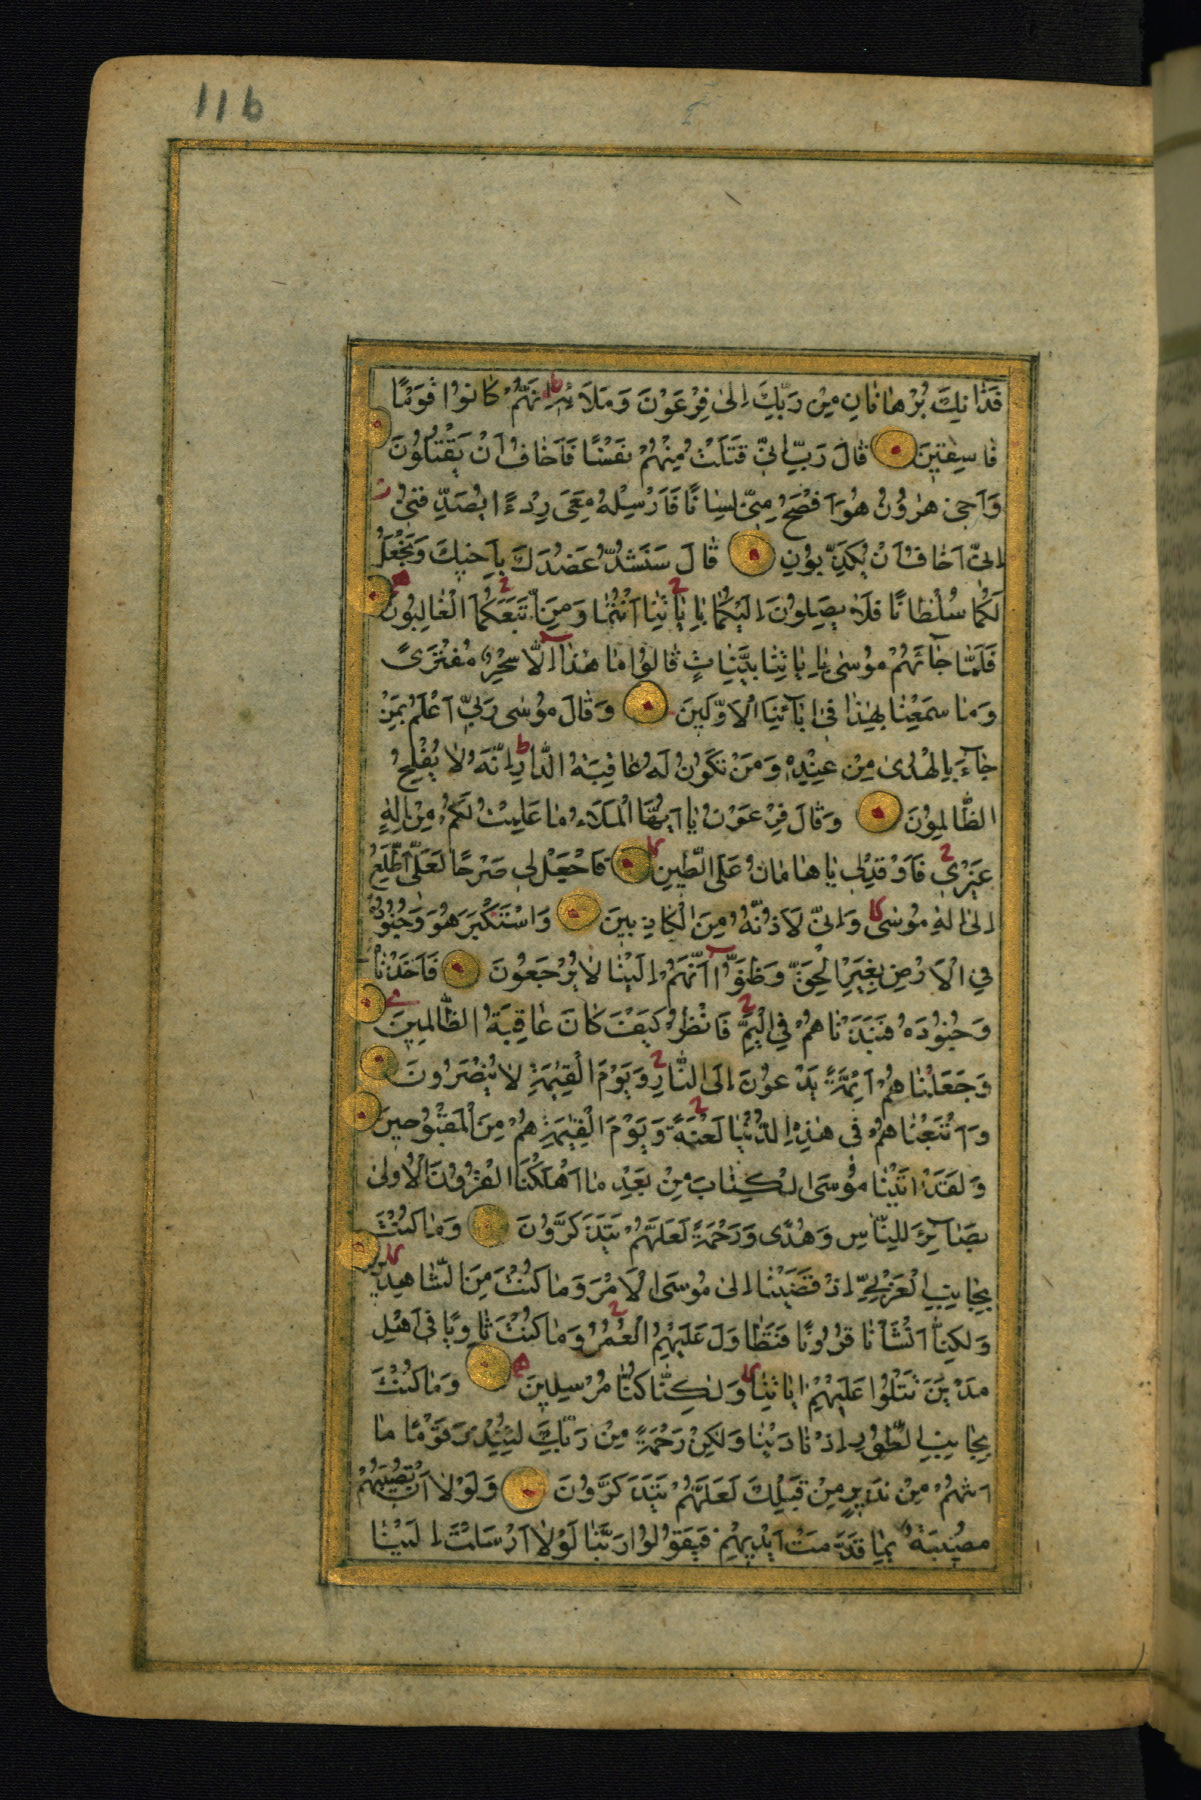 116
فَذَانِكَ بُرْهَانَانِ مِنْ رَبِّكَ اِلٰى فِرْعَوْنَ وَمَلَائِهِ ط اِنَّهُمْ كَانُوا قَوْمًا
فَاسِقٖينَ قَالَ رَبِّ اِنّٖى قَتَلْتُ مِنْهُمْ نَفْسًا فَاَخَافُ اَنْ يَقْتُلُونَ
وَاَخٖى هٰرُونُ هُوَ اَفْصَحُ مِنّٖى لِسَانًا فَاَرْسِلْهُ مَعِىَ رِدْءًا يُصَدِّقُنٖى
اِنّٖى اَخَافُ اَنْ يُكَذِّبُونِ قَالَ سَنَشُدُّ عَضُدَكَ بِاَخٖيكَ وَنَجْعَلُ
لَكُمَا سُلْطَانًا فَلَا يَصِلُونَ اِلَيْكُمَا بِاٰيَاتِنَا اَنْتُمَا وَمَنِ اتَّبَعَكُمَا الْغَالِبُونَ
فَلَمَّا جَآئَهُمْ مُوسٰى بِاٰيَاتِنَا بَيِّنَاتٍ قَالُوا مَا هٰذَا اِلَّا سِحْرٌ مُفْتَرًى
وَمَا سَمِعْنَا بِهٰذَا فٖى اٰبَآئِنَا الْاَوَّلٖينَ وَقَالَ مُوسٰى رَبّٖى اَعْلَمُ بِمَنْ
جَآءَ بِالْهُدٰى مِنْ عِنْدِهٖ وَمَنْ تَكُونُ لَهُ عَاقِبَةُ الدَّارِ ط اِنَّهُ لَا يُفْلِحُ
الظَّالِمُونَ وَقَالَ فِرْعَوْنُ يَا اَيُّهَا الْمَلَاُ مَا عَلِمْتُ لَكُمْ مِنْ اِلٰهٍ
غَيْرٖى فَاَوْقِدْ لٖى يَا هَامَانُ عَلَى الطّٖينِ فَاجْعَلْ لٖى صَرْحًا لَعَلّٖى اَطَّلِعُ
اِلٰى اِلٰهِ مُوسٰى لا وَاِنّٖى لَاَظُنُّهُ مِنَ الْكَاذِبٖينَ وَاسْتَكْبَرَ هُوَ وَجُنُودُهُ
فِى الْاَرْضِ بِغَيْرِ الْحَقِّ وَظَنُّوا اَنَّهُمْ اِلَيْنَا لَا يُرْجَعُونَ فَاَخَذْنَاهُ
وَجُنُودَهُ فَنَبَذْنَاهُمْ فِى الْيَمِّ فَانْظُرْ كَيْفَ كَانَ عَاقِبَةُ الظَّالِمٖينَ
وَجَعَلْنَاهُمْ اَئِمَّةً يَدْعُونَ اِلَى النَّارِ وَيَوْمَ الْقِيٰمَةِ لَا يُنْصَرُونَ
وَاَتْبَعْنَاهُمْ فٖى هٰذِهِ الدُّنْيَا لَعْنَةً وَيَوْمَ الْقِيٰمَةِ هُمْ مِنَ الْمَقْبُوحٖينَ
وَلَقَدْ اٰتَيْنَا مُوسَى الْكِتَابَ مِنْ بَعْدِ مَا اَهْلَكْنَا الْقُرُونَ الْاُولٰى
بَصَآئِرَ لِلنَّاسِ وَهُدًى وَرَحْمَةً لَعَلَّهُمْ يَتَذَكَّرُونَ وَمَا كُنْتَ
بِجَانِبِ الْغَرْبِىِّ اِذْ قَضَيْنَا اِلٰى مُوسَى الْاَمْرَ وَمَا كُنْتَ مِنَ الشَّاهِدٖينَ
وَلٰكِنَّا اَنْشَاْنَا قُرُونًا فَتَطَاوَلَ عَلَيْهِمُ الْعُمُرُ وَمَا كُنْتَ ثَاوِيًا فٖى اَهْلِ
مَدْيَنَ تَتْلُوا عَلَيْهِمْ اٰيَاتِنَا لا وَلٰكِنَّا كُنَّا مُرْسِلٖينَ وَمَا كُنْتَ
بِجَانِبِ الطُّورِ اِذْ نَادَيْنَا وَلٰكِنْ رَحْمَةً مِنْ رَبِّكَ لِتُنْذِرَ قَوْمًا مَا
اَتٰهُمْ مِنْ نَذٖيرٍ مِنْ قَبْلِكَ لَعَلَّهُمْ يَتَذَكَّرُونَ وَلَوْلَا اَنْ تُصٖيبَهُمْ
مُصٖيبَةٌ بِمَا قَدَّمَتْ اَيْدٖيهِمْ فَيَقُولُوا رَبَّنَا لَوْلَا اَرْسَلْتَ اِلَيْنَا